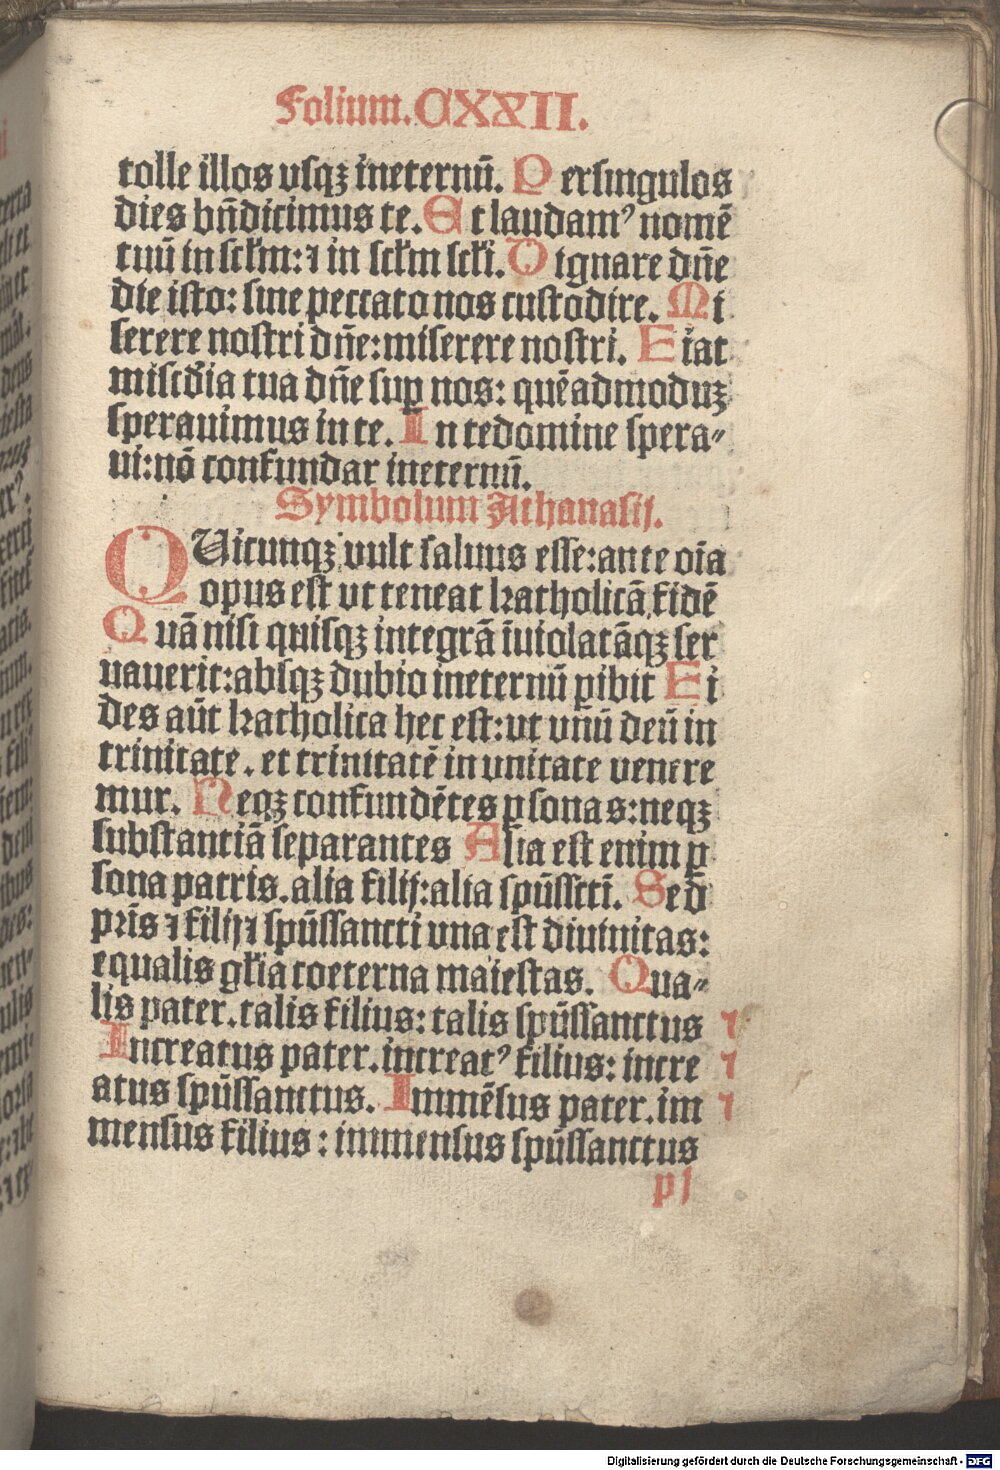 Folium. CXXII.
tolle illos vsqꝫ ineternū. Persingulos
dies bn̄dicimus te. Et laudamꝰ nomē
tuū in scl̄m: ⁊ in scl̄m scl̄i. Dignare dn̄e
die isto: sine peccato nos custodire. Mi
serere nostri dn̄e: miserere nostri. Fiat
miscd̄ia tua dn̄e suꝑ nos: quēadmoduꝫ
sperauimus in te. In te domine spera⸗
ui: nō confundar ineternū.
Symbolum Athanasij.
QUicunqꝫ vult saluus esse: ante oīa
opus est vt teneat katholicā fidē
Quā nisi quisqꝫ integrā īuiolatāqꝫ ser
uauerit: absqꝫ dubio ineternū ꝑibit Fi
des aūt katholica hec est: vt vnū deū in
trinitate. et trinitatē in vnitate venere
mur. Neqꝫ confundētes ꝑsonas: neqꝫ
substantiā separantes Alia est enim ꝑ
sona patris. alia filij: alia spūsscti. Sed
pr̄is ⁊ filij ⁊ spūssancti vna est diuinitas:
equalis gl̄ia coeterna maiestas. Qua⸗
lis pater. talis filius: talis spūssanctus ⁊
Increatus pater. increatꝰ filius: incre ⁊
atus spūssanctus. Immēsus pater. im ⁊
mensus filius: immensus spūssanctus
pj
Digitalisierung gefördert durch die Deutsche Forschungsgemeinschaft - DFG